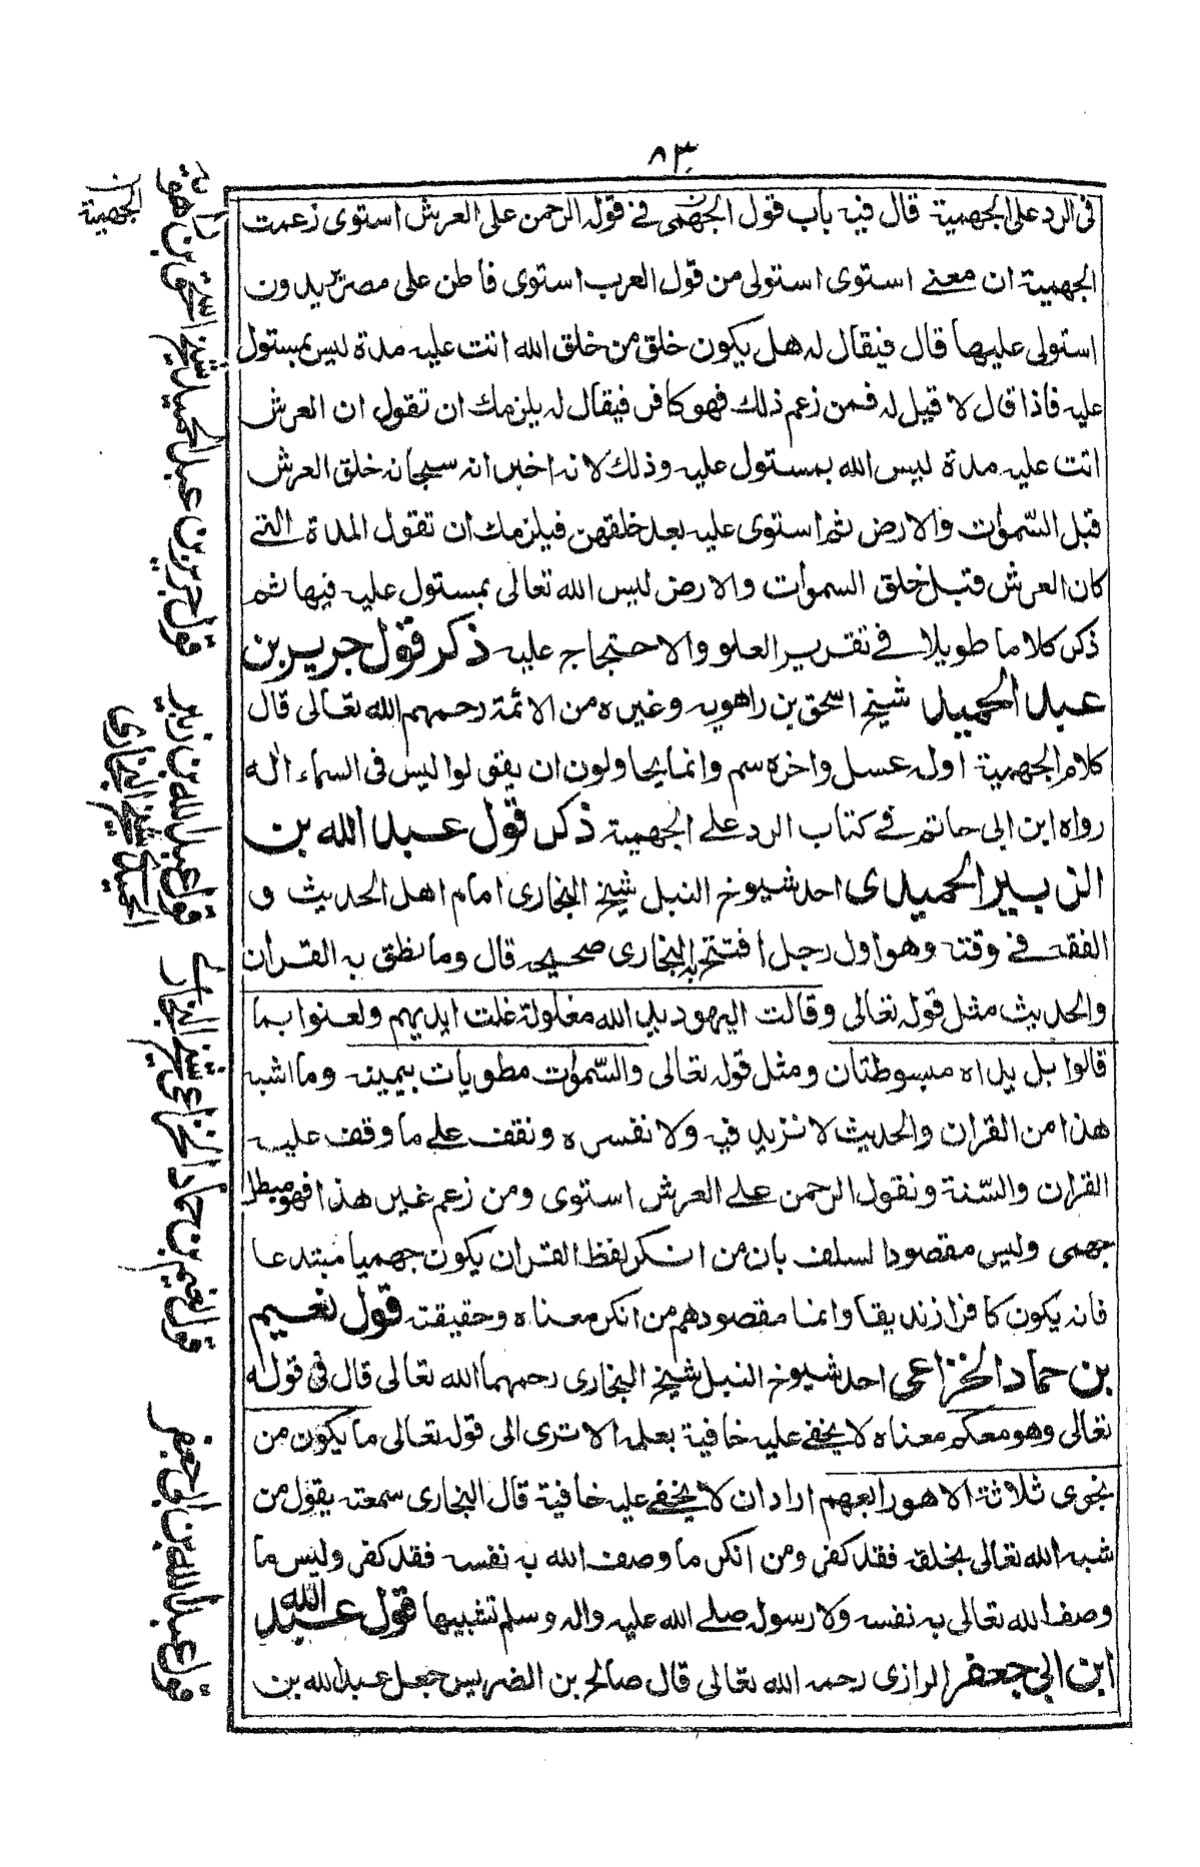 ٨٣
فى الرد على الجهمية قال فيه باب قول الجهمى فى قوله الرحمن على العرش استوى زعمت
الجهمية ان معنى استوى استولى من قول العرب استوى فلان على مصر يريدون
استولى عليها قال فيقال له هل يكون خلق من خلق الله اتت عليه مدة ليس بمستول
عليه فاذا قال لا قيل له فمن زعم ذلك فهو كافر فيقال له يلزمك ان تقول ان العرش
اتت عليه مدة ليس الله بمستول عليه وذلك لانه اخبر انه سبحانه خلق العرش
قبل السّمٰوٰت والارض ثم استوى عليه بعد خلقهن فيلزمك ان تقول المدة التى
كان العرش قبل خلق السموات والارض ليس الله تعالى بمستول عليه فيها ثم
ذكر كلاما طويلا فى تقرير العلو والاحتجاج عليه ذكر قول جرير بن
عبد الحميد شيخ اسحق بن راهويه وغيره من الائمة رحمهم الله تعالى قال
كلام الجهمية اوله عسل واخره سم وانما يحاولون ان يقولوا ليس فى السماء اله
رواه ابن ابى حاتم فى كتاب الرد على الجهمية ذكر قول عبد الله بن
الزبير الحميدى احد شيوخ النبل شيخ البخارى امام اهل الحديث و
الفقه فى وقته وهو اول رجل افتتح به البخارى صحيحه قال وما نطق به القرآن
والحديث مثل قوله تعالى وقالت اليهود يد الله مغلولة غلت ايديهم ولعنوا بما
قالوا بل يداه مبسوطتان ومثل قوله تعالى والسّمٰوٰت مطويات بيمينه وما اشبه
هذا من القران والحديث لا نزيد فيه ولا نفسره ونقف على ما وقف عليه
القران والسّنة ونقول الرحمن على العرش استوى ومن زعم غير هذا فهو مبطل
جهمى وليس مقصود السلف بان من انكر لفظ القران يكون جهميا مبتدعا
فانه يكون كافرا زنديقا وانما مقصودهم من انكر معناه وحقيقته قول نعيم
بن حماد الخزاعى احد شيوخ النبل شيخ البخارى رحمهما الله تعالى قال فى قوله
تعالى وهو معكم معناه لا يخفى عليه خافية بعلمه الا ترى الى قوله تعالى ما يكون من
نجوى ثلاثة الا هو رابعهم اراد ان لا يخفى عليه خافية قال البخارى سمعته يقول من
شبه الله تعالى بخلقه فقد كفر ومن انكر ما وصف الله به نفسه فقد كفر وليس ما
وصف الله تعالى به نفسه ولا رسوله صلى الله عليه واله وسلم تشبيها قول عبد الله
ابن ابى جعفر الرازى رحمه الله تعالى قال صالح بن الضريس جعل عبد الله بن
الجهمية
قول جرير بن عبد الحميد شيخ اسحق بن راهويه
قول عبد الله بن زبير
الحميدى شيخ البخارى
قول نعيم بن حماد الخزاعى شيخ البخارى
قول عبد الله بن ابى جعفر